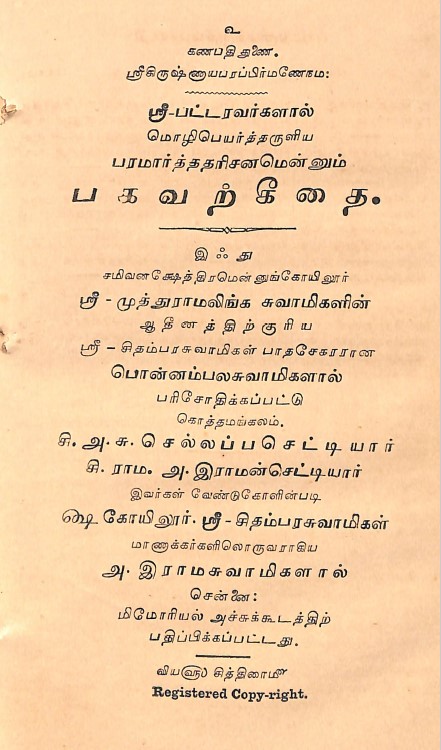 உ
கணபதி துணை.
ஸ்ரீகிருஷ்ணாயபரப்பிர்மணேநம:
ஸ்ரீ-பட்டரவர்களால்
மொழிபெயர்த்தருளிய
பரமார்த்ததரிசனமென்னும்
பகவற்கீதை.
இஃது
சமிவனக்ஷேத்திரமென்னுங்கோயிலூர்
ஸ்ரீ-முத்துராமலிங்க சுவாமிகளின்
ஆதீனத்திற்குரிய
ஸ்ரீ-சிதம்பரசுவாமிகள் பாதசேகரரான
பொன்னம்பலசுவாமிகளால்
பரிசோதிக்கப்பட்டு
கொத்தமங்கலம்.
சி. அ. சு. செல்லப்பசெட்டியார்
சி. ராம. அ. இராமன்செட்டியார்
இவர்கள் வேண்டுகோளின்படி
௸ கோயிலூர். ஸ்ரீ-சிதம்பரசுவாமிகள்
மாணாக்கர்களிலொருவராகிய
அ. இராமசுவாமிகளால்
சென்னை:
மிமோரியல் அச்சுக்கூடத்திற்
பதிப்பிக்கப்பட்டது.
விய௵ சித்திரை௴
Registered Copy-right.